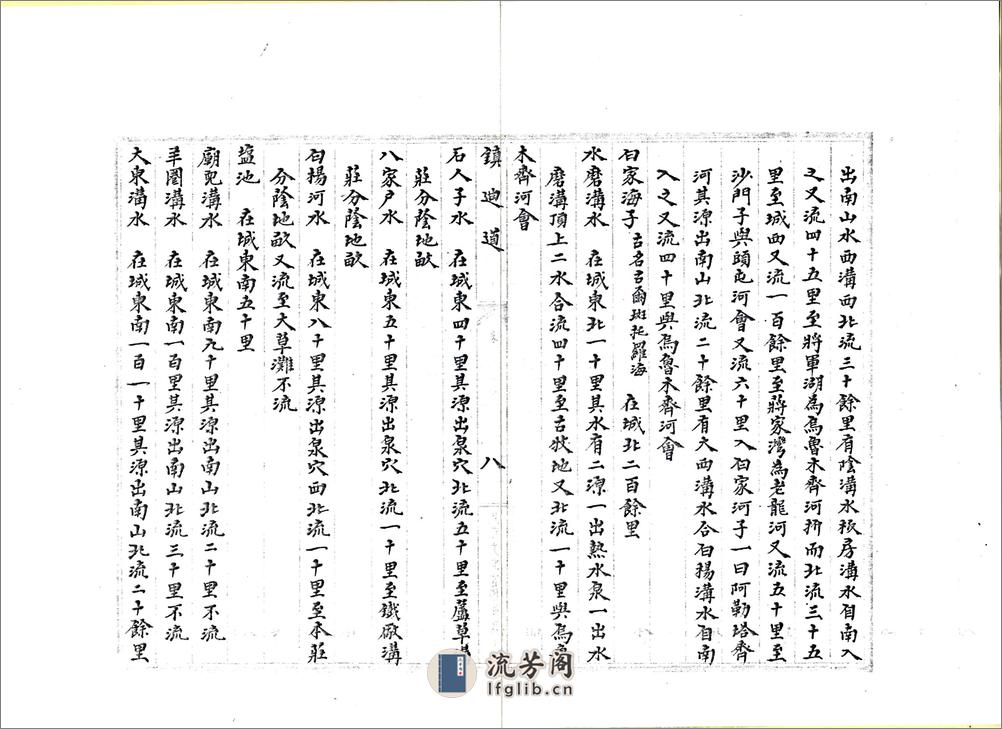 出南山水西溝西北流三十餘里有陰溝水板房溝水自南入
之又流四十五里至將軍湖為烏魯木齊河折而北流三十五
里至城西又流一百餘里至蔣家灣為老龍河又流五十里至
沙門子與頭屯河會又流六十里入白家河子一曰阿勒塔齊
河其源出南山北流二十餘里有大西溝水合白揚溝水自南
入之又流四十里與烏魯木齊河會
白家海子 古名古爾班托羅海 在城北二百餘里
水磨溝水 在城東北一十里其水有二源一出熱水泉一出水
磨溝頂上二水合流四十里至古牧地又北流一十里與烏魯
木齊河會
鎮迪道 八
石人子水 在城東四十里其源出泉穴北流五十里至蘆草溝
莊分陰地畝
八家户水 在城東五十里其源出泉穴北流一十里至鐵廠溝
莊分陰地畝
白揚河水 在城東八十里其源出泉穴西北流一十里至本莊
分陰地畝又流至大草灘不流
盐池 在城東南五十里
廟兒溝水 在城東南九十里其源出南山北流二十里不流
羊圈溝水 在城東南一百里其源出南山北流三十里不流
大東溝水 在城東南一百一十里其源出南山北流二十餘里
流芳阁
lfglib.cn